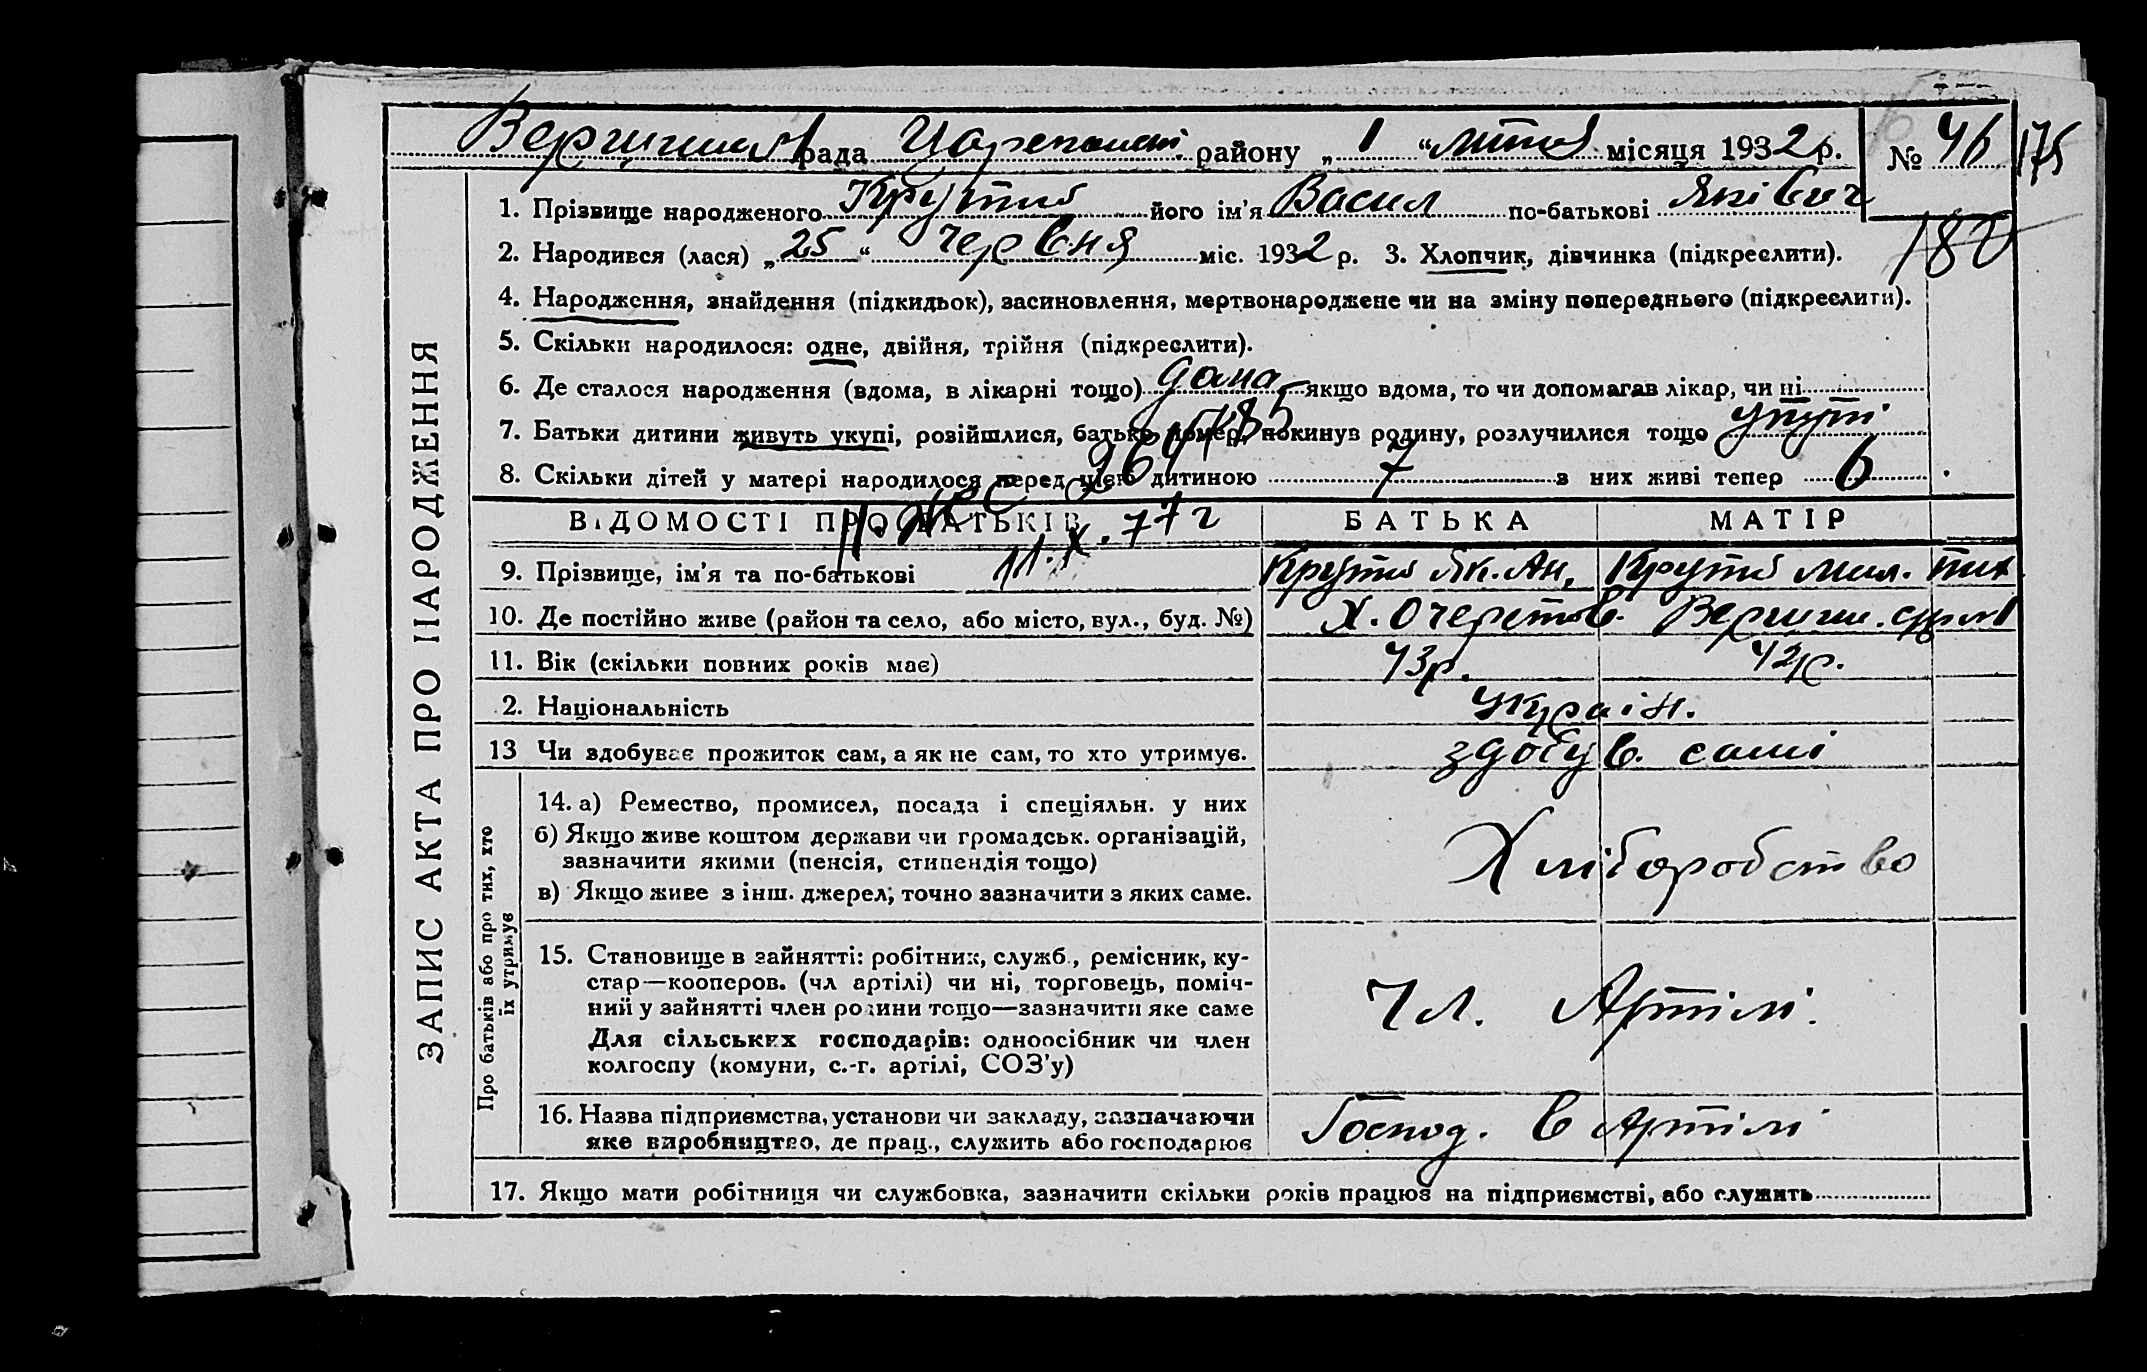 рада Царичанськ. району „ 1 “ липня місяця 1932 р. № 46
175
1. Прізвище народженого Крутий його ім'я Васил по-батькові Яківич
180
2. Народився (лася) „ 25 “ червня міс. 1932 р. 3. Хлопчик, дівчинка (підкреслити).
4. Народження, знайдення (підкидьок), засиновлення, мертвонароджене чи на зміну попереднього (підкреслити).
5. Скільки народилося: одне, двійня, трійня (підкреслити).
6. Де сталося народження (вдома, в лікарні тощо) дома якщо вдома, то чи допомагав лікар, чи ні
7. Батьки дитини живуть укупі, розійшлися, батько помер, покинув родину, розлучилися тощо укупі
8. Скільки дітей у матері народилося перед цією дитиною 7 з них живі тепер 6
ВІДОМОСТІ ПРО БАТЬКІВ БАТЬКА МАТІР
11.X.77 г
9. Прізвище, ім'я та по-батькові Крутий Як. Ан. Крута
10. Де постійно живе (район та село, або місто, вул., буд. №) Х. Очеретов.
11. Вік (скільки повних років має) 43р. 42р.
2. Національність Україн.
13 Чи здобуває прожиток сам, а як не сам, то хто утримує. здобув. самі
14. а) Ремество, промисел, посада і спеціяльн. у них
б) Якщо живе коштом держави чи громадськ. організацій,
зазначити якими (пенсія, стипендія тощо)
Хліборобство
в) Якщо живе з інш. джерел, точно зазначити з яких саме.
15. Становище в зайнятті: робітник, служб., ремісник, ку-
стар—кооперов. (чл артілі) чи ні, торговець, поміч-
ний у зайнятті член родини тощо—зазначити яке саме
Чл. Артілі.
Для сільських господарів: одноосібник чи член
колгоспу (комуни, с.-г. артілі, СОЗ'у)
16. Назва підприємства, установи чи закладу, зазначаючи
яке виробництво, де прац., служить або господарює
Господ. в Артілі
17. Якщо мати робітниця чи службовка, зазначити скільки років працює на підприємстві, або служить
ЗАПИС АКТА ПРО НАРОДЖЕННЯ
Про батьків або про тих, хто
їх утримує